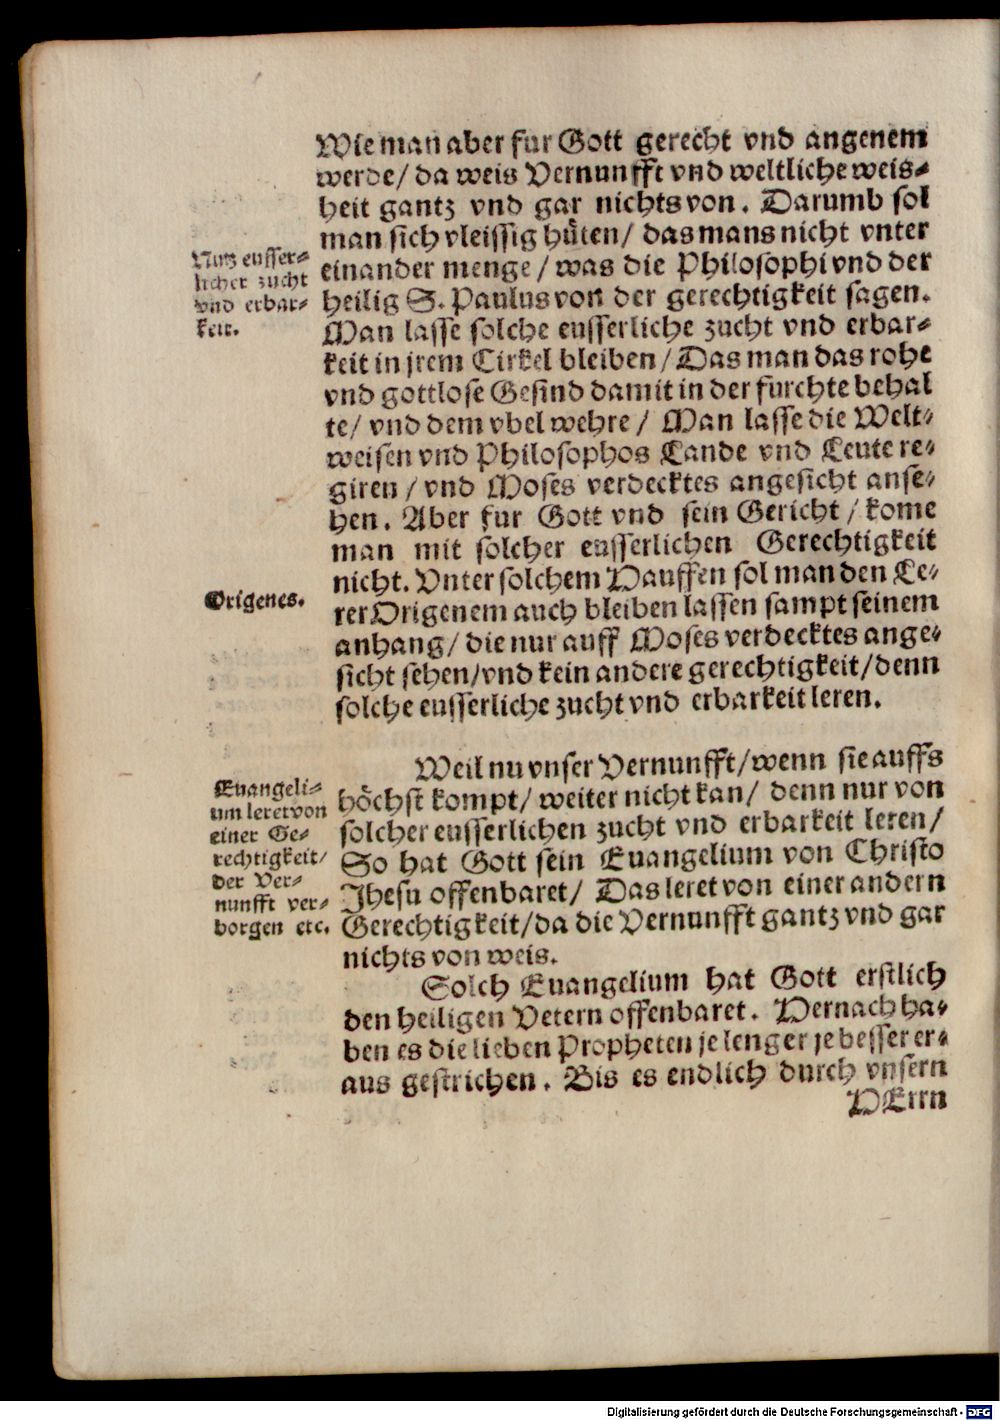 Wie man aber fur Gott gerecht vnd angenem
werde/ da weis Vernunfft vnd weltliche weis-
heit gantz vnd gar nichts von. Darumb sol
man sich vleissig hüten/ das mans nicht vnter
einander menge/ was die Philosophi vnd der
heilig S. Paulus von der gerechtigkeit sagen.
Man lasse solche eusserliche zucht vnd erbar-
keit in jrem Cirkel bleiben/ Das man das rohe
vnd gottlose Gesind damit in der furchte behal
te/ vnd dem vbel wehre/ Man lasse die Welt-
weisen vnd Philosophos Lande vnd Leute re-
giren/ vnd Moses verdecktes angesicht anse-
hen. Aber fur Gott vnd sein Gericht/ kome
man mit solcher eusserlichen Gerechtigkeit
nicht. Vnter solchem Hauffen sol man den Le-
rer Origenem auch bleiben lassen sampt seinem
anhang/ die nur auff Moses verdecktes ange-
sicht sehen/ vnd kein andere gerechtigkeit/ denn
solche eusserliche zucht vnd erbarkeit leren.
Nutz eusser-
licher zucht
vnd erbar-
keit.
Origenes.
Weil nu vnser Vernunfft/ wenn sie auffs
höchst kompt/ weiter nicht kan/ denn nur von
solcher eusserlichen zucht vnd erbarkeit leren/
So hat Gott sein Euangelium von Christo
Jhesu offenbaret/ Das leret von einer andern
Gerechtigkeit/ da die Vernunfft gantz vnd gar
nichts von weis.
Euangeli-
um leret von
einer Ge-
rechtigkeit/
der Ver-
nunfft ver-
borgen etc.
Solch Euangelium hat Gott erstlich
den heiligen Vetern offenbaret. Hernach ha-
ben es die lieben Propheten je lenger je besser er-
aus gestrichen. Bis es endlich durch vnsern
HErrn
Digitalisierung gefördert durch die Deutsche Forschungsgemeinschaft - DFG